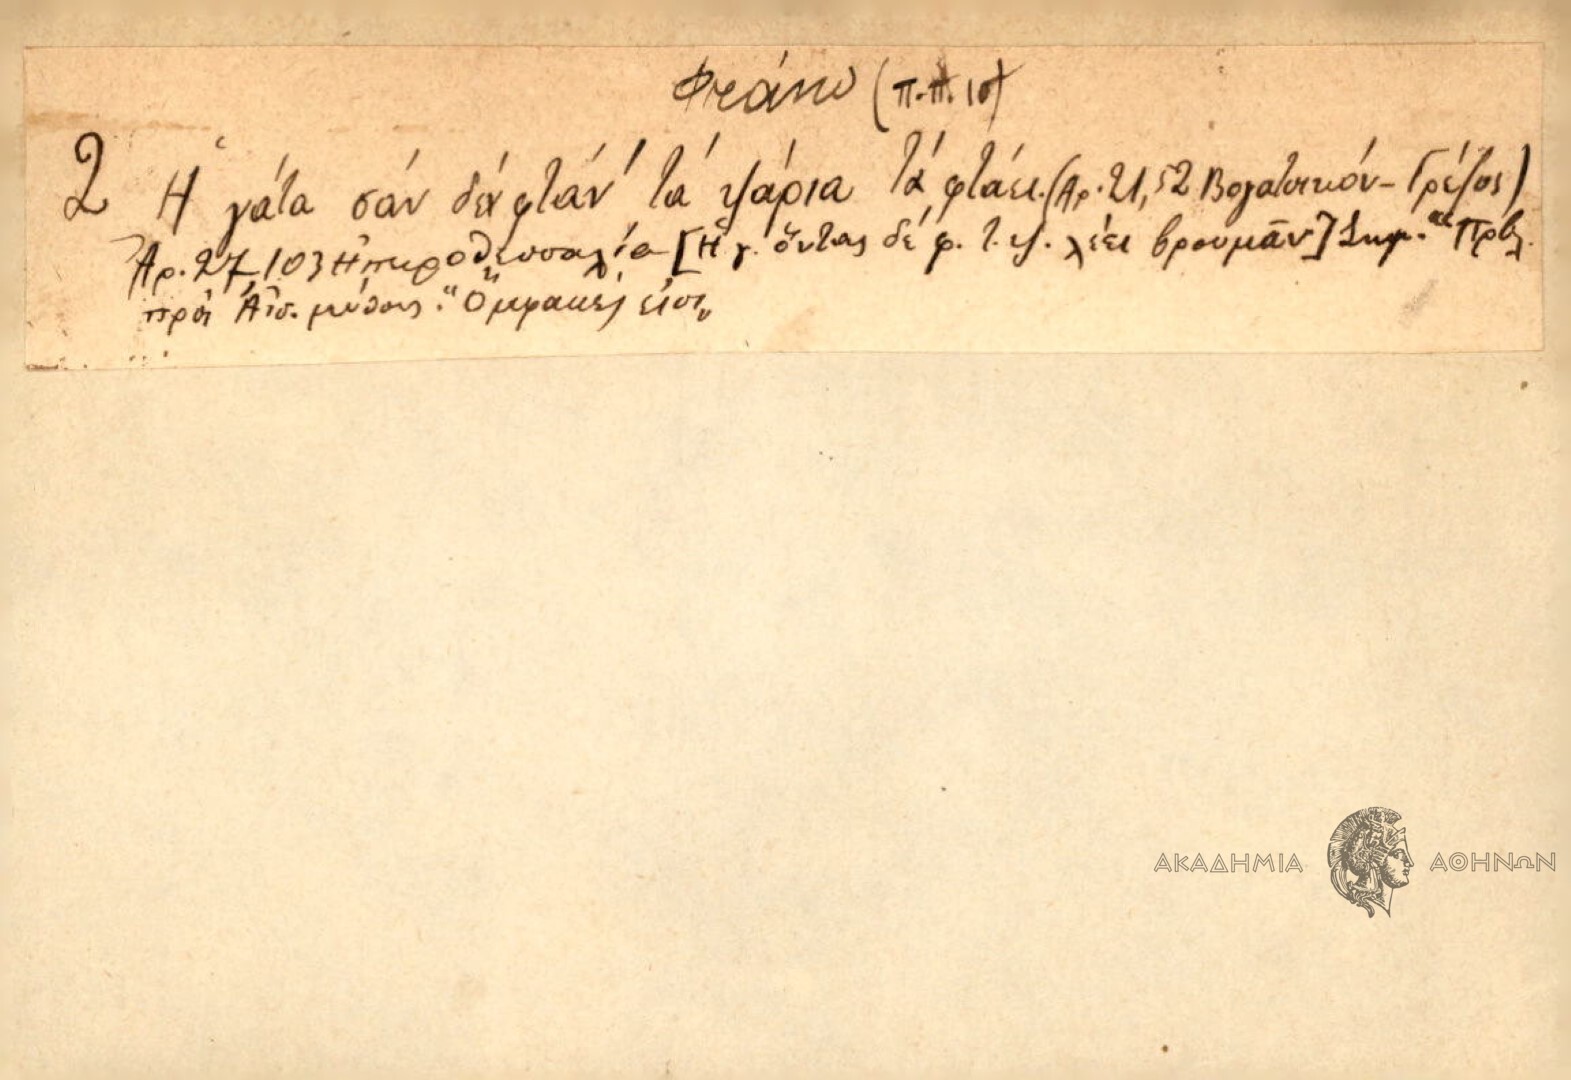 Φτάνω (π.π. 10)
2 Ἡ γάτα σάν δέν φτάν' τά ψάρια τά φτάει. (Ἀρ. 21, 52 Βογατσικόν - Γρέζος)
Ἀρ. 27, 103 Ἠπειροθεσσαλία [Ἡ γ. ὄντας δέ φ. τ. ψ. λέει βρουμᾶν'] Σημ. "Πρβλ.
πρός Αἰσ. μύθους: "Ὄμφακές εἰσι„
ΑΚΑΔΗΜΙΑ ΑΘΗΝΩΝ